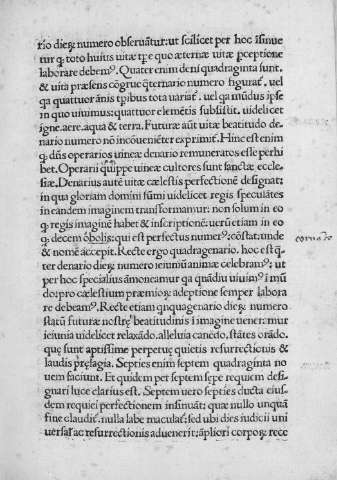 rio dieꝝ numero obseruāt̃ur: ut scilicet per hoc īsinue
tur ꝙ toto huius uitæ tꝑe quo æternæ uitæ ꝑceptione
laborare debemꝰ. Quater enim deni quadraginta sunt.
& uita præsens cōgrue q̃ternario numero figurat̃. uel
ꝗa quattuor ānis tꝑibus tota uariat̃. uel ꝗa mūdus ipse
in quo uiuimus: quattuor elemētis subsistit. uidelicet
igne. aere. aqua & terra. Futuræ aūt uitæ beatitudo de
nario numero nō incōueniēter exprimit̃. Hinc est enim
ꝙ dn̄s operarios uineæ denario remuneratos esse perhi
bet. Operarii quippe uineæ cultores sunt sanctæ eccle
siæ. Denarius autē uitæ cælestis perfectionē designat:
in qua gloriam domini sūmi uidelicet regis speculātes
in eandem imaginem transformamur: non solum in eo
ꝙ regis imaginē habet & inscriptionē: uerū etiam in eo
ꝙ decem obolis: qui est perfectus numerꝰ: cōstat: unde
& nomē accepit. Recte ergo quadragenario. hoc est q̃
ter denario dieꝝ numero ieiuniū animæ celebramꝰ: ut
per hoc specialius āmoneamur ꝗa quādiu uiuimꝰ ī mū
do: pro cælestium præmioꝝ adeptione semper labora
re debeamꝰ. Recte etiam qnquagenario dieꝝ numero
statū futuræ nostrę beatitudinis ī imagine tenere: mur
ieiunia uidelicet relaxādo. alleluia canēdo. stātes orādo.
quę sunt aptissime perpetuę quietis resurrectionis &
laudis pręsagia. Septies enim septem quadraginta no
uem faciunt. Et quidem per septem sepe requiem desi
gnari luce clarius est. Septem uero septies ducta eius
dem requiei perfectionem insinuāt: quæ nullo unquā
fine claudit̃. nulla labe maculat̃: sed ubi dies iudicii uni
uersaꝉ ac resurrectionis aduenerit: āpliori corporꝝ rece